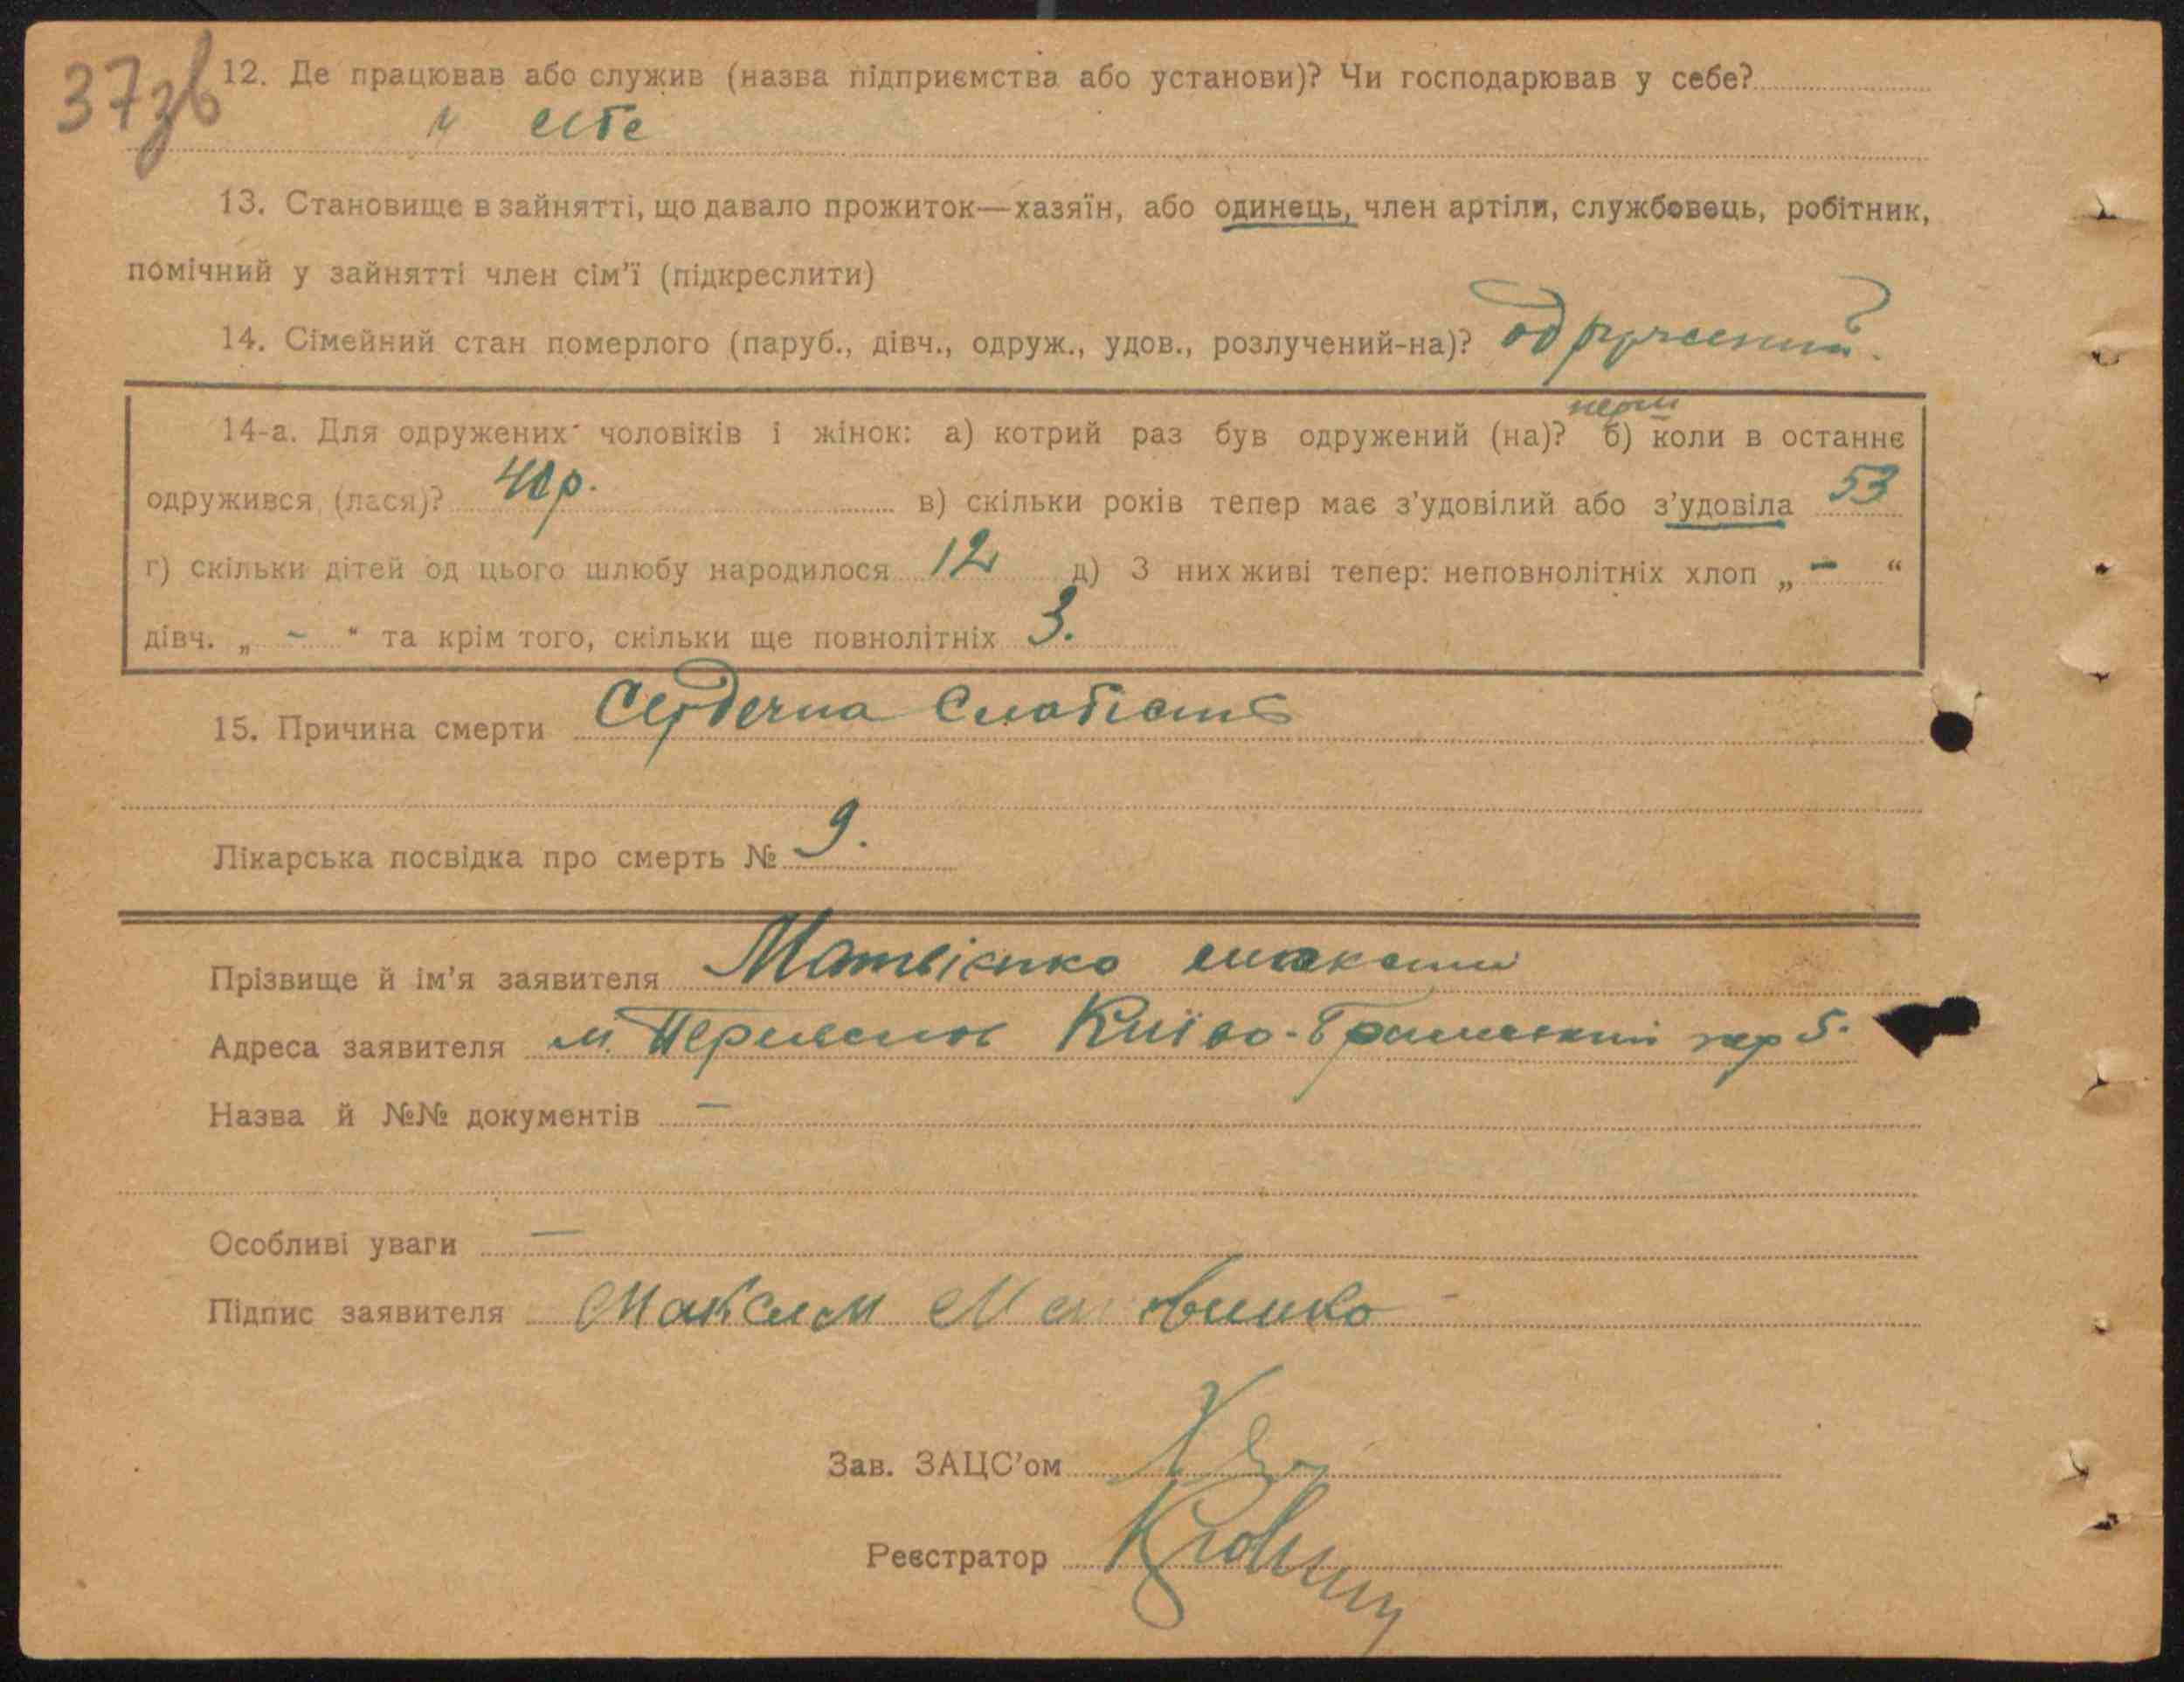 37зв
12. Де працював або служив (назва підприємства або установи)? Чи господарював у себе?
у себе
13. Становище в зайнятті, що давало прожиток—хазяїн, або одинець, член артіли, службовець, робітник,
помічний у зайнятті член сім'ї (підкреслити)
14. Сімейний стан померлого (паруб., дівч., одруж., удов., розлучений-на)? одружений.
перш
14-а. Для одружених чоловіків і жінок: а) котрий раз був одружений (на)? б) коли в останнє
одружився (лася)? р. в) скільки років тепер має з'удовілий або з'удовіла 53
г) скільки дітей од цього шлюбу народилося 12 д) З них живі тепер: неповнолітніх хлоп „ – “
дівч. „ – “ та крім того, скільки ще повнолітніх 3.
15. Причина смерти Сердечна Слабість
Лікарська посвідка про смерть № 9.
Прізвище й ім'я заявителя Матвієнко
Адреса заявителя м. Києво- пер 5.
Назва й №№ документів —
Особливі уваги —
Підпис заявителя Максим
Зав. ЗАЦС'ом
Реєстратор